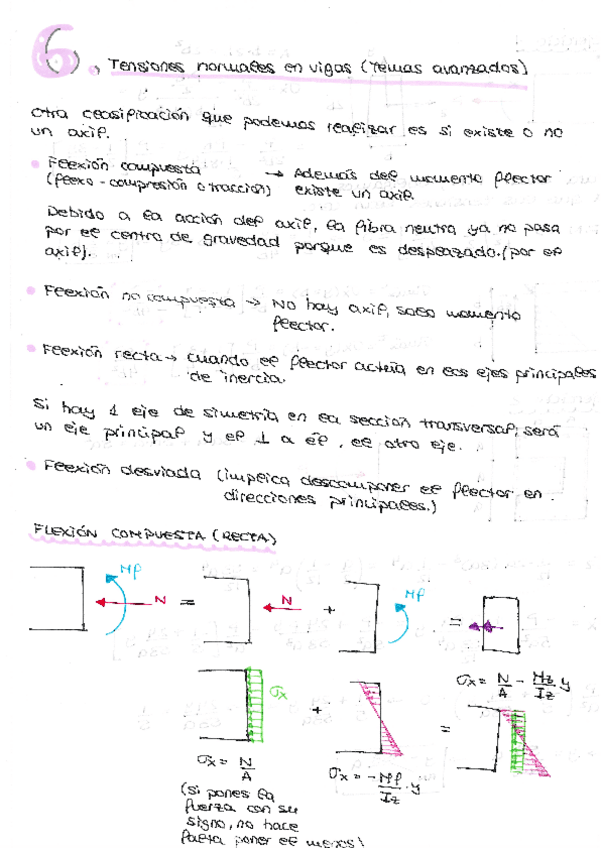 6. Tensiones normales en vigas (Temas avanzados)
Otra clasificación que podemos realizar es si existe o no
un axil.
• Flexión compuesta → Además del momento flector
(flexo-compresión o tracción) existe un axil.
Debido a la acción del axil, la fibra neutra ya no pasa
por el centro de gravedad porque es desplazado. (por el
axil).
• Flexión no compuesta → No hay axil, solo momento
flector.
• Flexión recta → cuando el flector actúa en los ejes principales
de inercia.
Si hay 1 eje de simetría en la sección transversal, será
un eje principal y el ⊥ a él, el otro eje.
• Flexión desviada (implica descomponer el flector en
direcciones principales.)
FLEXIÓN COMPUESTA (RECTA)
Mf N = N + Mf =
σx = N/A - Mz/Iz y
σx + =
σx = N/A
σx = - Mf/Iz · y
(si pones la
fuerza con su
signo, no hace
falta poner el menos)